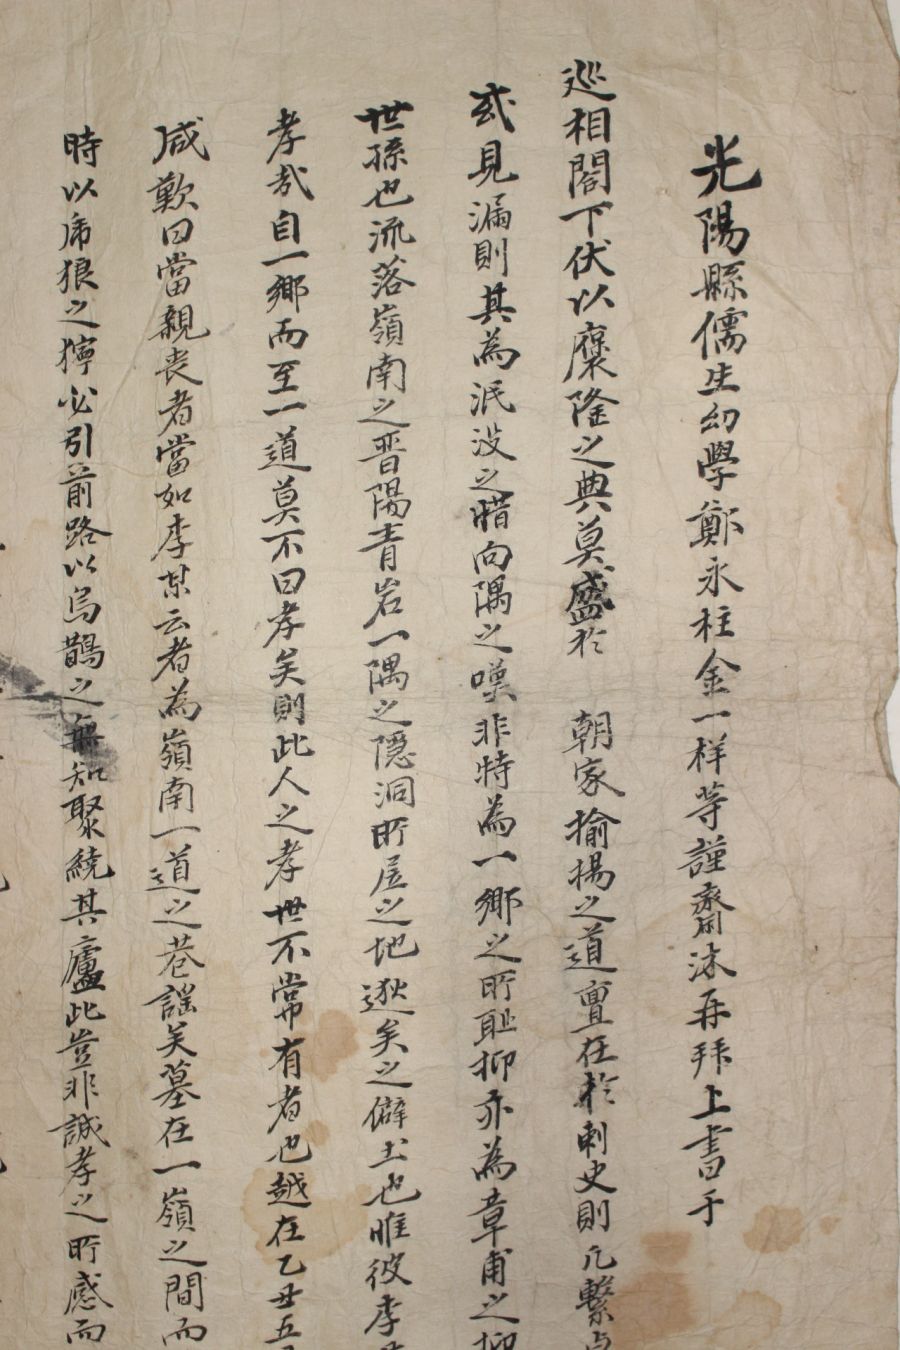 光陽縣儒生幼學鄭永柱金一样等謹齋沐再拜上書于
巡相閤下伏以褒隆之典莫盛於 朝家揄揚之道亶在於刺史則凡繫
或見漏則其為泯沒之 向隅之嘆非特為一鄉之所耻抑亦為章甫之抑
世孫也流落嶺南之晋陽青岩一隅之隱洞所居之地逖矣之僻土也唯彼李
孝哉自一鄉而至一道莫不曰孝矣則此人之孝世不常有者也越在乙丑五
咸歎曰當親丧者當如李某云者為嶺南一道之巷謠矣墓在一嶺之間而
時以乕狼之獰必引前路以烏鵲之無知聚繞其廬此豈非誠孝之所感而